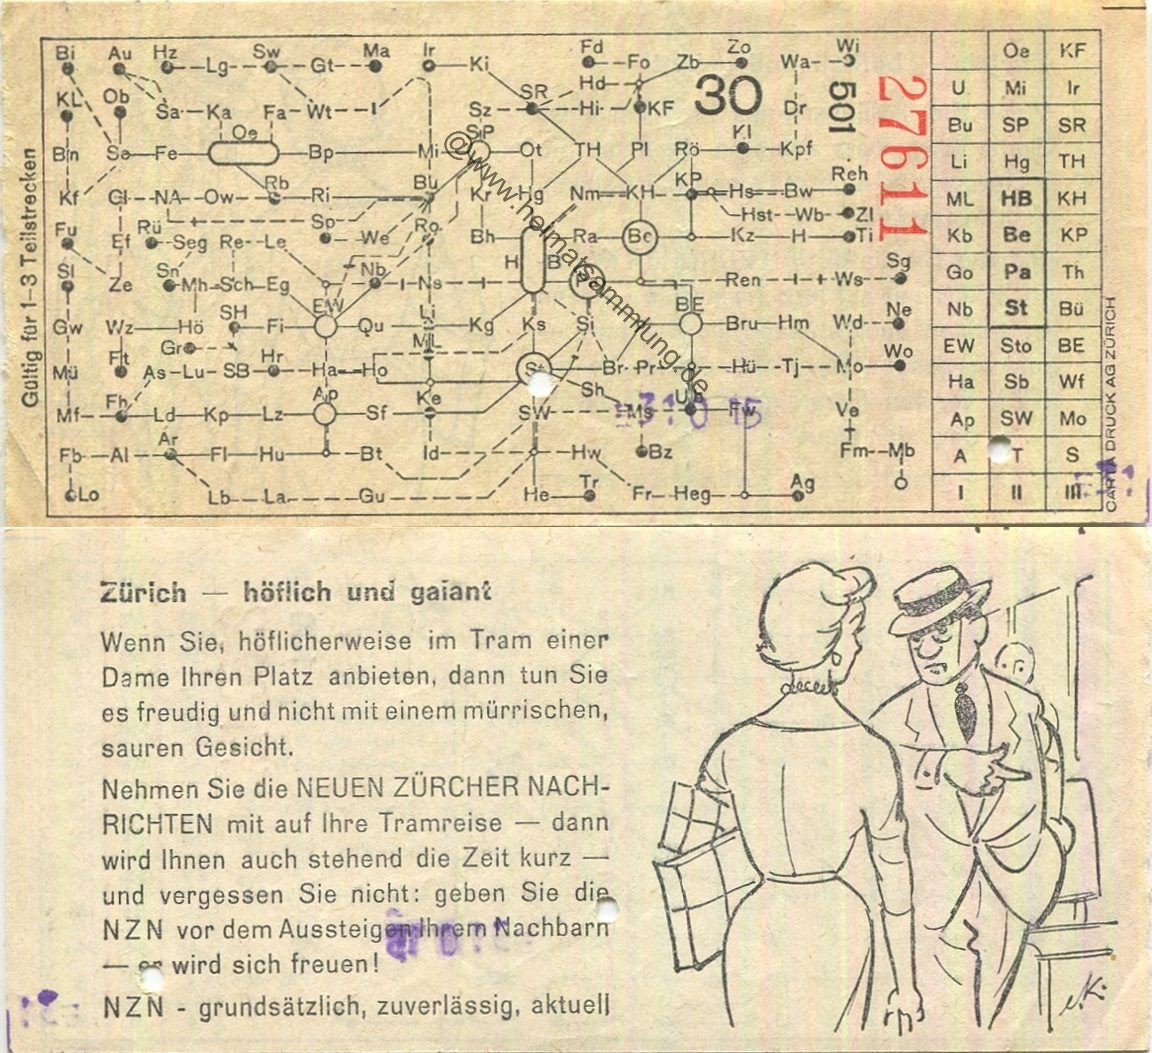 Gültig für 1–3 Teilstrecken
Bi Au Hz Lg Sw Gt Ma Ir Ki Fd Fo Zb Zo Wa Wi
Hd
KL Ob Sa Ka Fa Wt I Sz SR Hi KF 30 Dr 501 27611
Oe SP Kl
Bn Se Fe Bp Mi Ot TH Pl Rö Kpf
Rb Bu KP Reh
Kf Gl NA Ow Ri Kr Hg Nm KH Hs Bw
Sp Hst Wb Zl
Fu Rü Ro
Ef Seg Re Le We Bh Ra Be Kz H Ti
Sn Nb H B Sg
Sl Ze Mh Sch Eg I Ns I Ren I Ws
SH EW Li BE Ne
Gw Wz Hö Fi Qu Kg Ks Si Bru Hm Wd
Gr ML Wo
Ft Hr
Mü As Lu SB Ha Ho St Br Pr Hü Tj Mo
Fh Ap Ke Sh
Mf Ld Kp Lz Sf SW Ms Fw Ve
Ar
Fb Al Fl Hu Bt Id Hw Bz Fm Mb
Tr Ag
Lo Lb La Gu He Fr Heg
Oe KF
U Mi Ir
Bu SP SR
Li Hg TH
ML HB KH
Kb Be KP
Go Pa Th
Nb St Bü
EW Sto BE
Ha Sb Wf
Ap SW Mo
A T S
I II III
CARTA DRUCK AG ZÜRICH
@www.heimatsammlung.de
Zürich — höflich und galant
Wenn Sie, höflicherweise im Tram einer
Dame Ihren Platz anbieten, dann tun Sie
es freudig und nicht mit einem mürrischen,
sauren Gesicht.
Nehmen Sie die NEUEN ZÜRCHER NACH-
RICHTEN mit auf Ihre Tramreise — dann
wird Ihnen auch stehend die Zeit kurz —
und vergessen Sie nicht: geben Sie die
NZN vor dem Aussteigen Ihrem Nachbarn
— er wird sich freuen!
NZN - grundsätzlich, zuverlässig, aktuell